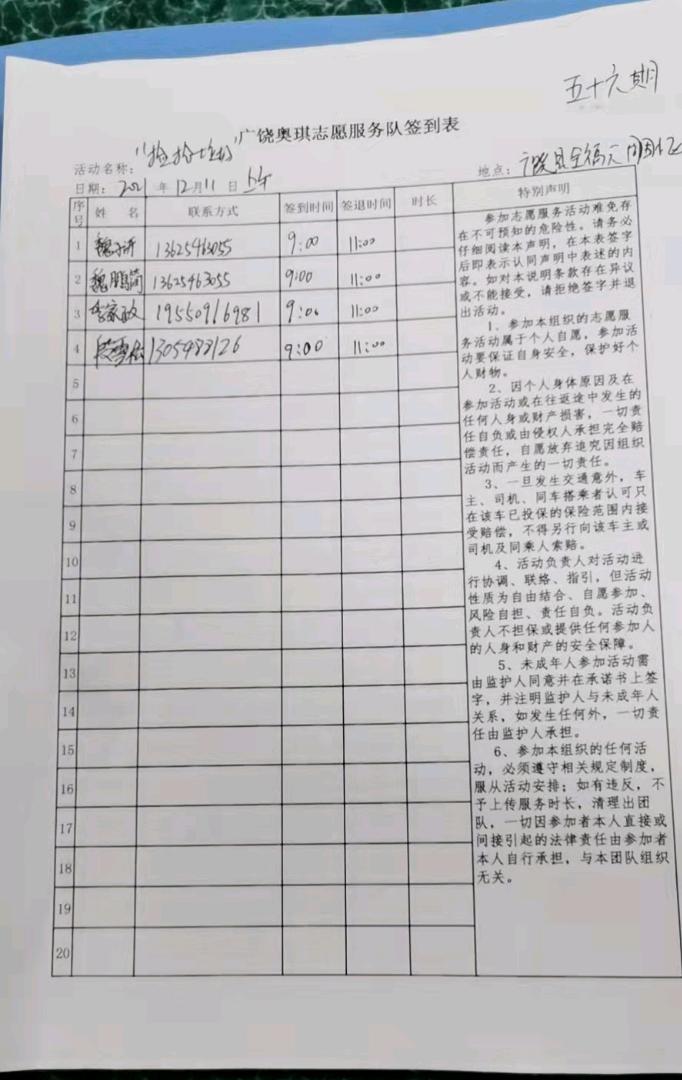 五十六期
广饶奥琪志愿服务队签到表
活动名称: "捡捡
地点: 广饶县全福元
日期: 2021 年 12 月 11 日 上午
序号 姓 名 联系方式 签到时间 签退时间 时长 特别声明
1 魏 13625463055 9:00 11:00
2 魏鹏简 13625463055 9:00 11:00
3 李家政 19550916981 9:00 11:00
4 1305488126 9:00 11:00
5
6
7
8
9
10
11
12
13
14
15
16
17
18
19
20
参加志愿服务活动难免存
在不可预知的危险性。请务必
仔细阅读本声明，在本表签字
后即表示认同声明中表述的内
容。如对本说明条款存在异议
或不能接受，请拒绝签字并退
出活动。
1、参加本组织的志愿服
务活动属于个人自愿，参加活
动要保证自身安全，保护好个
人财物。
2、因个人身体原因及在
参加活动或在往返途中发生的
任何人身或财产损害，一切责
任自负或由侵权人承担完全赔
偿责任，自愿放弃追究因组织
活动而产生的一切责任。
3、一旦发生交通意外，车
主、司机、同车搭乘者认可只
在该车已投保的保险范围内接
受赔偿，不得另行向该车主或
司机及同乘人索赔。
4、活动负责人对活动进
行协调、联络、指引，但活动
性质为自由结合、自愿参加、
风险自担、责任自负。活动负
责人不担保或提供任何参加人
的人身和财产的安全保障。
5、未成年人参加活动需
由监护人同意并在承诺书上签
字，并注明监护人与未成年人
关系，如发生任何外，一切责
任由监护人承担。
6、参加本组织的任何活
动，必须遵守相关规定制度，
服从活动安排；如有违反，不
予上传服务时长，清理出团
队，一切因参加者本人直接或
间接引起的法律责任由参加者
本人自行承担，与本团队组织
无关。